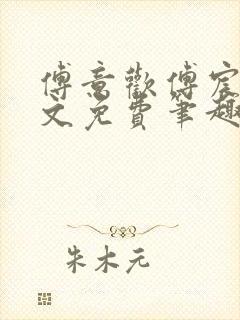 傅意歡傅宸
文免費筆趣
朱木元